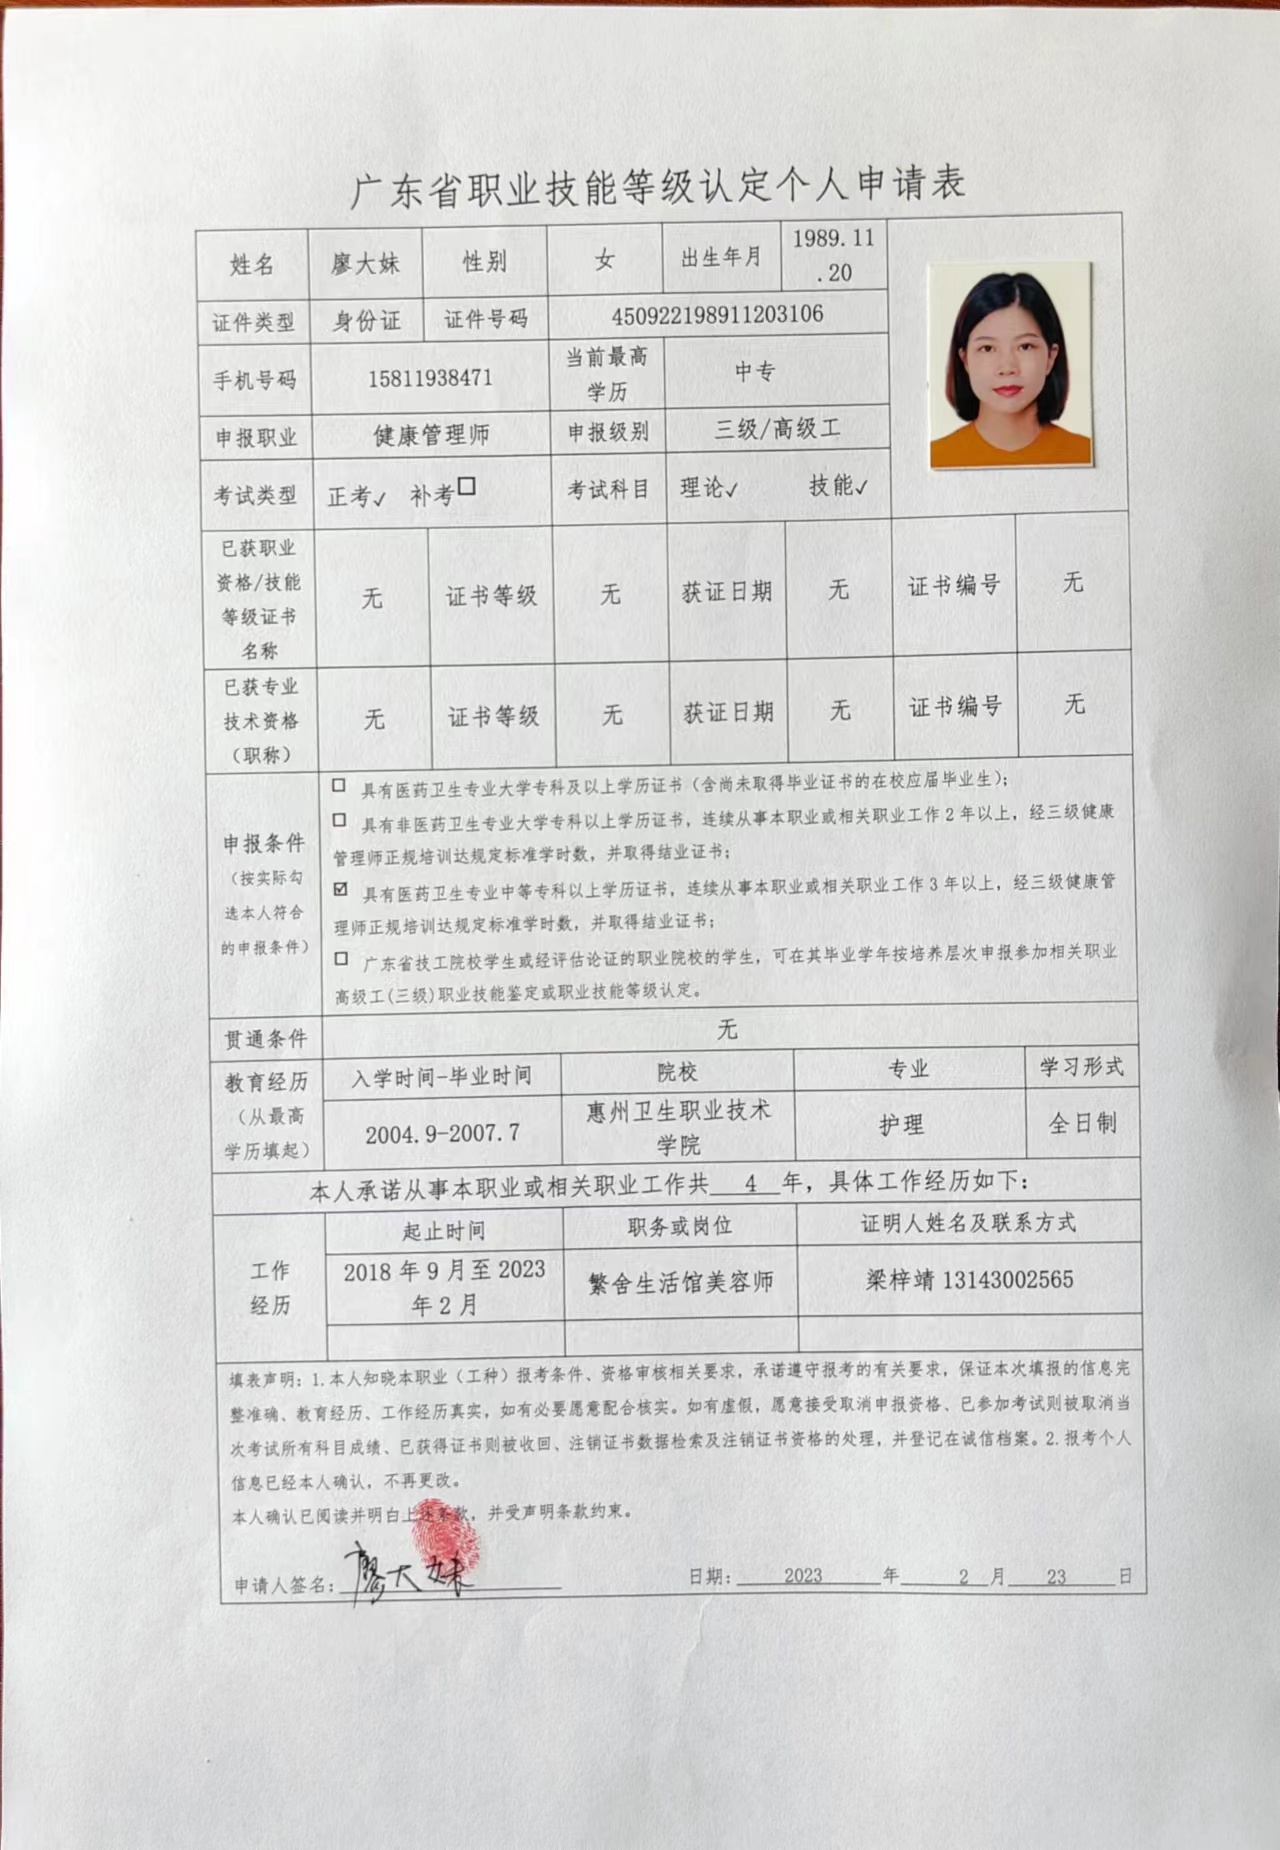 广东省职业技能等级认定个人申请表
姓名 廖大妹 性别 女 出生年月 1989.11
.20
证件类型 身份证 证件号码 450922198911203106
手机号码 15811938471 当前最高
学历 中专
申报职业 健康管理师 申报级别 三级/高级工
考试类型 正考✓ 补考□ 考试科目 理论✓ 技能✓
已获职业
资格/技能
等级证书
名称 无 证书等级 无 获证日期 无 证书编号 无
已获专业
技术资格
（职称） 无 证书等级 无 获证日期 无 证书编号 无
申报条件
（按实际勾
选本人符合
的申报条件）
□ 具有医药卫生专业大学专科及以上学历证书（含尚未取得毕业证书的在校应届毕业生）；
□ 具有非医药卫生专业大学专科以上学历证书，连续从事本职业或相关职业工作2年以上，经三级健康
管理师正规培训达规定标准学时数，并取得结业证书；
☑ 具有医药卫生专业中等专科以上学历证书，连续从事本职业或相关职业工作3年以上，经三级健康管
理师正规培训达规定标准学时数，并取得结业证书；
□ 广东省技工院校学生或经评估论证的职业院校的学生，可在其毕业学年按培养层次申报参加相关职业
高级工(三级)职业技能鉴定或职业技能等级认定。
贯通条件 无
教育经历
（从最高
学历填起）
入学时间-毕业时间 院校 专业 学习形式
2004.9-2007.7 惠州卫生职业技术
学院 护理 全日制
本人承诺从事本职业或相关职业工作共 4 年，具体工作经历如下：
工作
经历
起止时间 职务或岗位 证明人姓名及联系方式
2018年9月至2023
年2月 繁舍生活馆美容师 梁梓靖13143002565
填表声明：1.本人知晓本职业（工种）报考条件、资格审核相关要求，承诺遵守报考的有关要求，保证本次填报的信息完
整准确、教育经历、工作经历真实，如有必要愿意配合核实。如有虚假，愿意接受取消申报资格、已参加考试则被取消当
次考试所有科目成绩、已获得证书则被收回、注销证书数据检索及注销证书资格的处理，并登记在诚信档案。2.报考个人
信息已经本人确认，不再更改。
本人确认已阅读并明白上述条款，并受声明条款约束。
申请人签名：廖大妹 日期：2023年2月23日